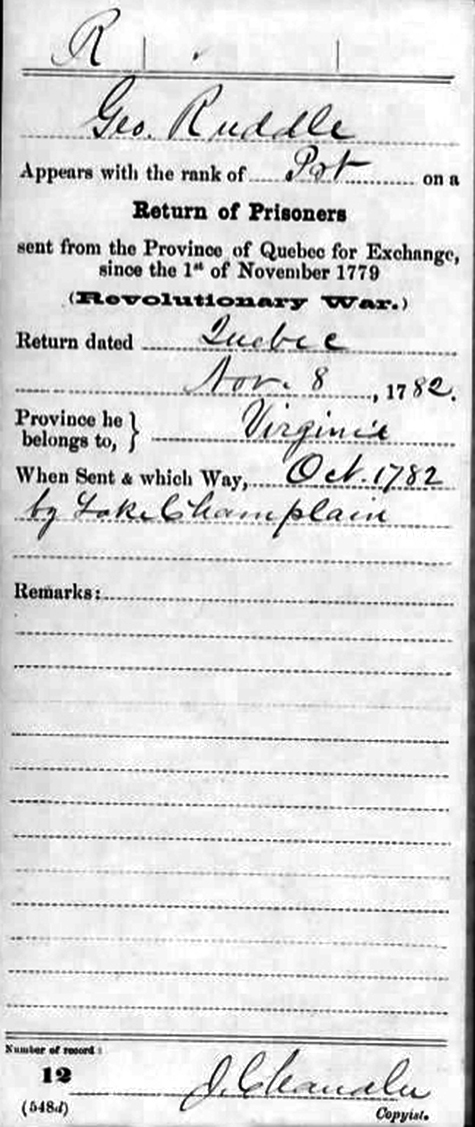 R
Geo. Ruddle
Appears with the rank of Pvt on a
Return of Prisoners
sent from the Province of Quebec for Exchange,
since the 1st of November 1779
(Revolutionary War.)
Return dated Quebec
Nov. 8, 1782.
Province he belongs to, } Virginia
When Sent & which Way, Oct. 1782
by Lake Champlain
Remarks:
Number of record:
12
J. Chandler
(548d) Copyist.